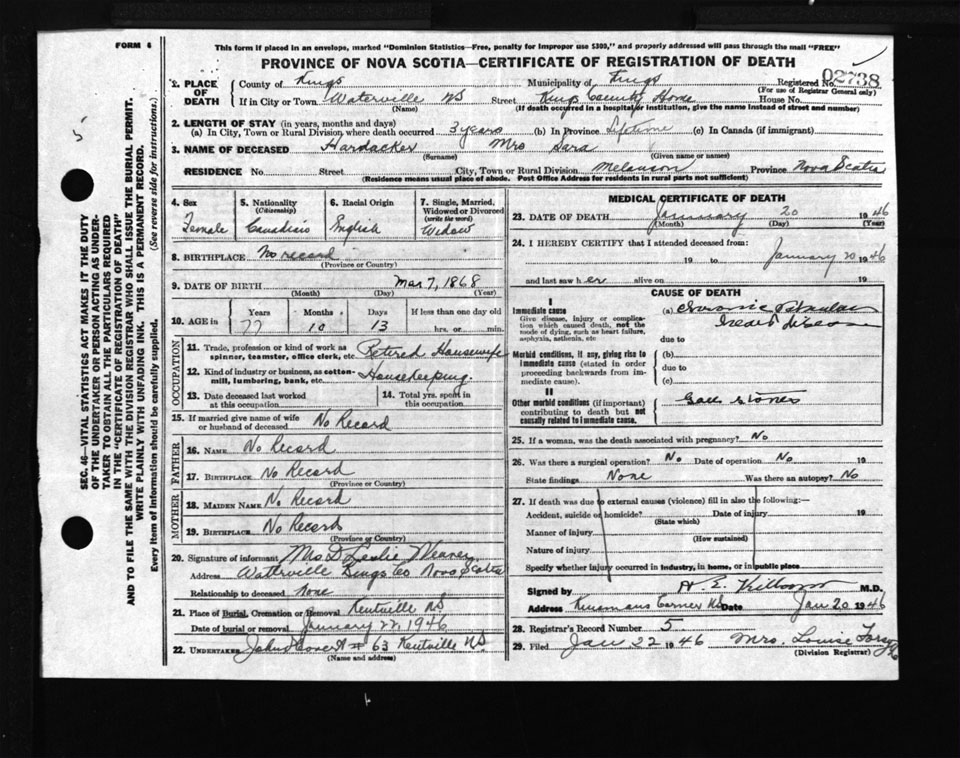 FORM 6
This form if placed in an envelope, marked "Dominion Statistics—Free, penalty for improper use $300," and properly addressed will pass through the mail "FREE"
PROVINCE OF NOVA SCOTIA—CERTIFICATE OF REGISTRATION OF DEATH
1. PLACE OF DEATH County of Kings Municipality of Kings Registered No. 02738
(For use of Registrar General only)
If in City or Town Waterville NS Street Kings County Home House No.
(Name) (If death occurred in a hospital or institution, give the name instead of street and number)
2. LENGTH OF STAY (in years, months and days)
(a) In City, Town or Rural Division where death occurred 3 years (b) In Province Lifetime (c) In Canada (if immigrant)
3. NAME OF DECEASED Hardacker Mrs Sara
(Surname) (Given name or names)
RESIDENCE No. Street City, Town or Rural Division Melanson Province Nova Scotia
(Residence means usual place of abode. Post Office Address for residents in rural parts not sufficient)
4. Sex Female
5. Nationality (Citizenship) Canadian
6. Racial Origin English
7. Single, Married, Widowed or Divorced (write the word) Widow
8. BIRTHPLACE No record
(Province or Country)
9. DATE OF BIRTH Mar 7, 1868
(Month) (Day) (Year)
10. AGE in Years 77 Months 10 Days 13 If less than one day old hrs. or min.
OCCUPATION
11. Trade, profession or kind of work as spinner, teamster, office clerk, etc. Retired Housewife
12. Kind of industry or business, as cotton-mill, lumbering, bank, etc. Housekeeping
13. Date deceased last worked at this occupation
14. Total yrs. spent in this occupation
15. If married give name of wife or husband of deceased No Record
FATHER
16. NAME No Record
17. BIRTHPLACE No Record
(Province or Country)
MOTHER
18. MAIDEN NAME No Record
19. BIRTHPLACE No Record
(Province or Country)
20. Signature of informant Mrs D Leslie Weaver
Address Waterville Kings Co Nova Scotia
Relationship to deceased None
21. Place of Burial, Cremation or Removal Kentville NS
Date of burial or removal January 22, 1946
22. UNDERTAKER # 63 Kentville NS
(Name and address)
MEDICAL CERTIFICATE OF DEATH
23. DATE OF DEATH January 20 1946
(Month) (Day) (Year)
24. I HEREBY CERTIFY that I attended deceased from:
19 to January 20 1946
and last saw her alive on 19
CAUSE OF DEATH
I
Immediate cause
Give disease, injury or complication which caused death, not the mode of dying, such as heart failure, asphyxia, asthenia, etc
(a) Chronic Valvular Heart disease
due to
Morbid conditions, if any, giving rise to immediate cause (stated in order proceeding backwards from immediate cause).
(b)
due to
(c)
II
Other morbid conditions (if important) contributing to death but not causally related to immediate cause.
Gall Stones
25. If a woman, was the death associated with pregnancy? No
26. Was there a surgical operation? No Date of operation No 19
State findings None Was there an autopsy? No
27. If death was due to external causes (violence) fill in also the following:—
Accident, suicide or homicide? Date of injury 19
(State which)
Manner of injury
(How sustained)
Nature of injury
Specify whether injury occurred in industry, in home, or in public place
Signed by M.D.
Address Kinsmans Corner NS Date Jan 20 1946
28. Registrar's Record Number 5
29. Filed Jan 22 1946 Mrs. Louise
(Division Registrar)
SEC. 46—VITAL STATISTICS ACT MAKES IT THE DUTY
OF THE UNDERTAKER OR PERSON ACTING AS UNDER-
TAKER TO OBTAIN ALL THE PARTICULARS REQUIRED
IN THE "CERTIFICATE OF REGISTRATION OF DEATH"
AND TO FILE THE SAME WITH THE DIVISION REGISTRAR WHO SHALL ISSUE THE BURIAL PERMIT.
WRITE PLAINLY WITH UNFADING INK. THIS IS A PERMANENT RECORD.
Every item of information should be carefully supplied. (See reverse side for instructions.)
5